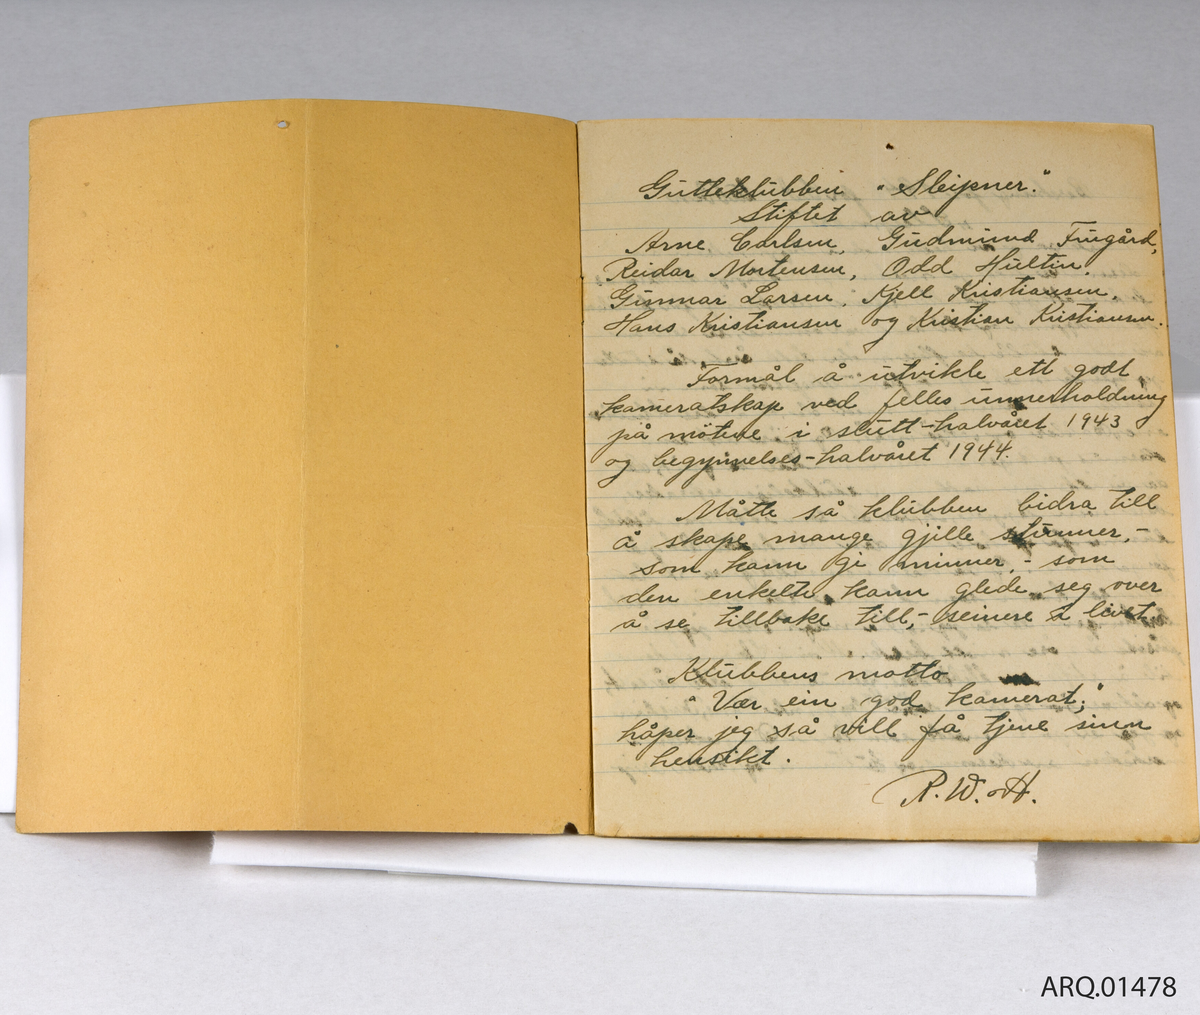 Gutteklubben "Sleipner."
Stiftet av
Arne Carlsen, Gudmund Fuegård,
Reidar Mortensen, Odd Hultin,
Gunnar Larsen, Kjell Kristiansen,
Hans Kristiansen og Kristian Kristiansen.
Formål å utvikle ett godt
kameratskap ved felles unnerholdning
på mötene i slutt-halvåret 1943
og begynnelses-halvåret 1944.
Måtte så klubben bidra till
å skape mange gjille stunner,-
som kann gi minner,- som
den enkelte kann glede seg over
å se tillbake till,- seinere i livet.
Klubbens motto
"Vær ein god kamerat,"
håper jeg så vill få tjene sinn
hensikt.
R. W.
ARQ.01478